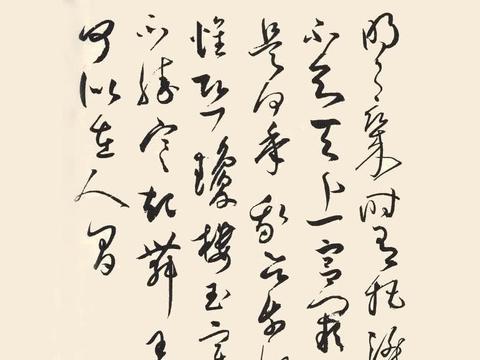 明月幾时有把酒
不知天上宫阙
是何年我欲乘
惟恐瓊樓玉宇
不勝寒起舞弄
何似在人間